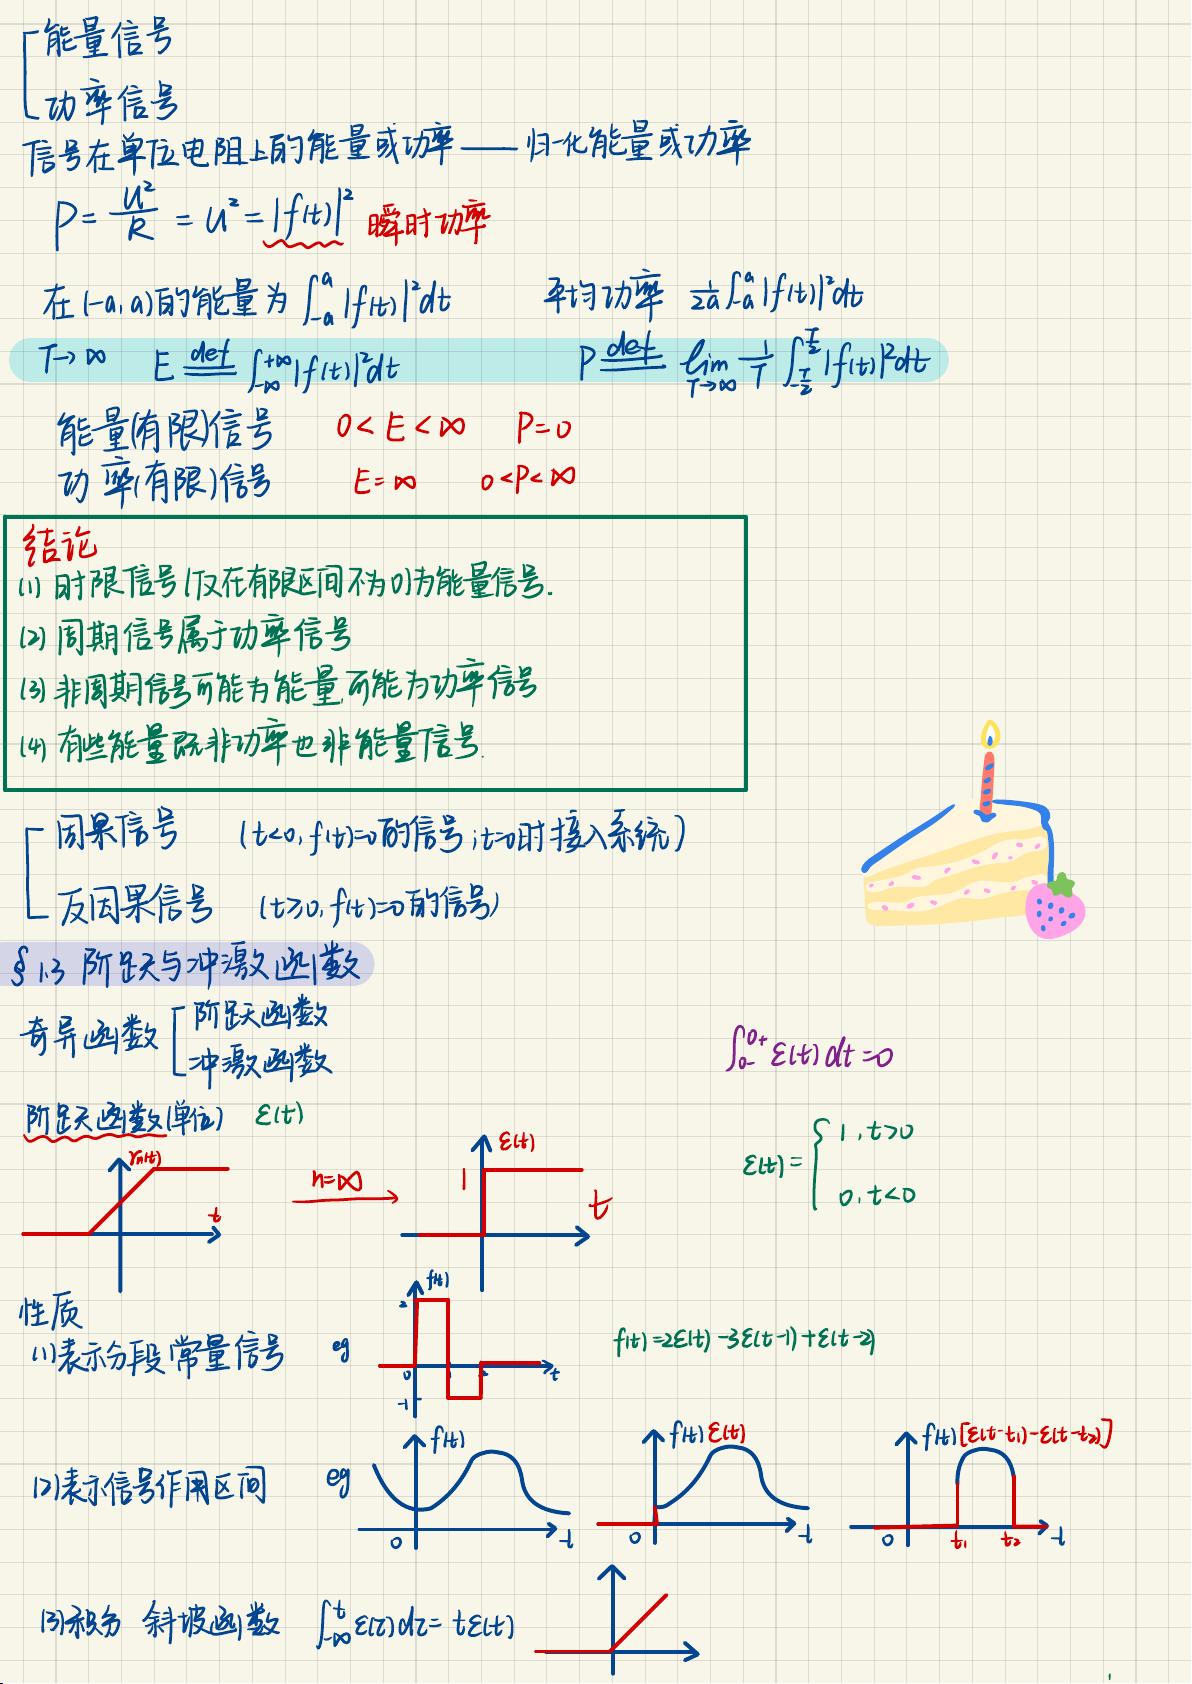 能量信号
功率信号
信号在单位电阻上的能量或功率——归一化能量或功率
P = u²/R = u² = |f(t)|² 瞬时功率
在(-a,a)的能量为 ∫_{-a}^{a} |f(t)|²dt 平均功率 1/2a ∫_{-a}^{a} |f(t)|²dt
T→∞ E def ∫_{-∞}^{+∞} |f(t)|²dt P def lim_{T→∞} 1/T ∫_{-T/2}^{T/2} |f(t)|²dt
能量(有限)信号 0<E<∞ P=0
功率(有限)信号 E=∞ 0<P<∞
结论
(1) 时限信号(仅在有限区间不为0)为能量信号.
(2) 周期信号属于功率信号
(3) 非周期信号可能为能量,可能为功率信号
(4) 有些能量既非功率也非能量信号.
因果信号 (t<0, f(t)=0的信号; t=0时接入系统)
反因果信号 (t≥0, f(t)=0的信号)
§1.3 阶跃与冲激函数
奇异函数
阶跃函数
冲激函数
∫_{0-}^{0+} ε(t)dt=0
阶跃函数(单位) ε(t)
ε(t)= { 1, t>0
0, t<0
γn(t)
t
n=∞
ε(t)
1
t
性质
(1)表示分段常量信号 eg
f(t)
2
0
1
2
t
-1
f(t)=2ε(t)-3ε(t-1)+ε(t-2)
(2)表示信号作用区间 eg
f(t)
0
t
f(t) ε(t)
0
t
f(t)[ε(t-t₁)-ε(t-t₂)]
0
t₁
t₂
t
(3)积分 斜坡函数 ∫_{-∞}^{t} ε(τ)dτ = tε(t)